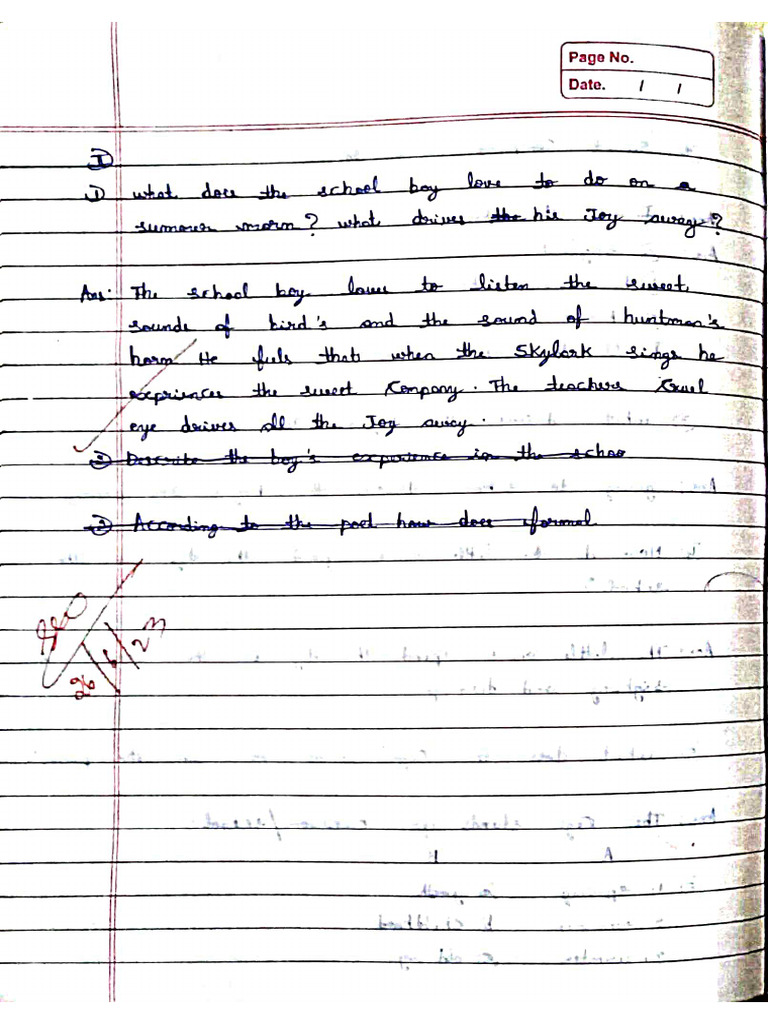 Page No.
Date. / /
I
1) what does the school boy love to do on a
summer morn? what drives the his Joy away?
Ans: The school boy loves to listen the sweet
sounds of bird's and the sound of huntman's
horn He feels that when the Skylark sings he
expriences the sweet Company. The teachers Cruel
eye drives all the Joy away.
2) Describe the boy's experience in the schoo
2) According to the poet how does formal
26/6/23